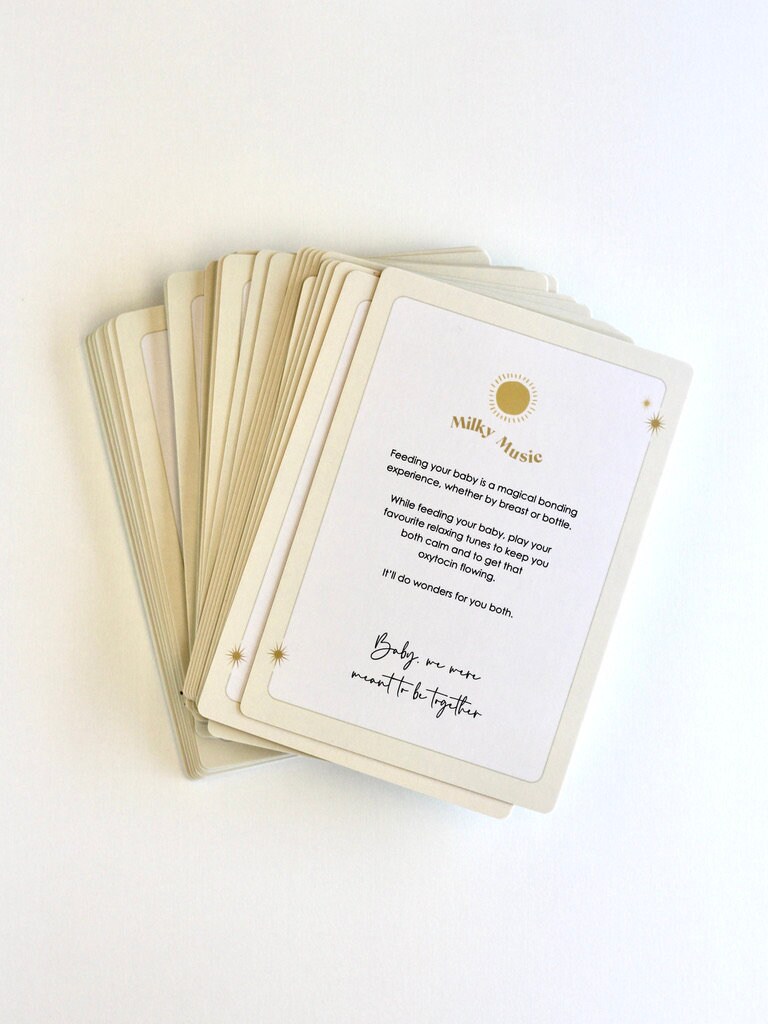 Milky Music
Feeding your baby is a magical bonding
experience, whether by breast or bottle.
While feeding your baby, play your
favourite relaxing tunes to keep you
both calm and to get that
oxytocin flowing.
It'll do wonders for you both.
Baby, we were
meant to be together